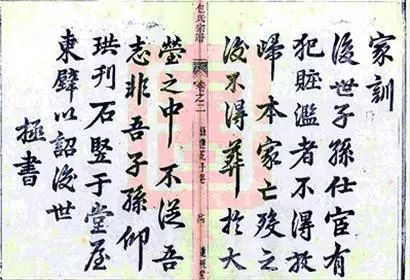 家訓
後世子孫仕官有
犯賍濫者不得放
歸本家亡殁之
後不得葬於大
包氏宗譜
卷之二
塋之中不從吾
志非吾子孫仰
珙刊石竪于堂屋
東壁以詔後世
拯書